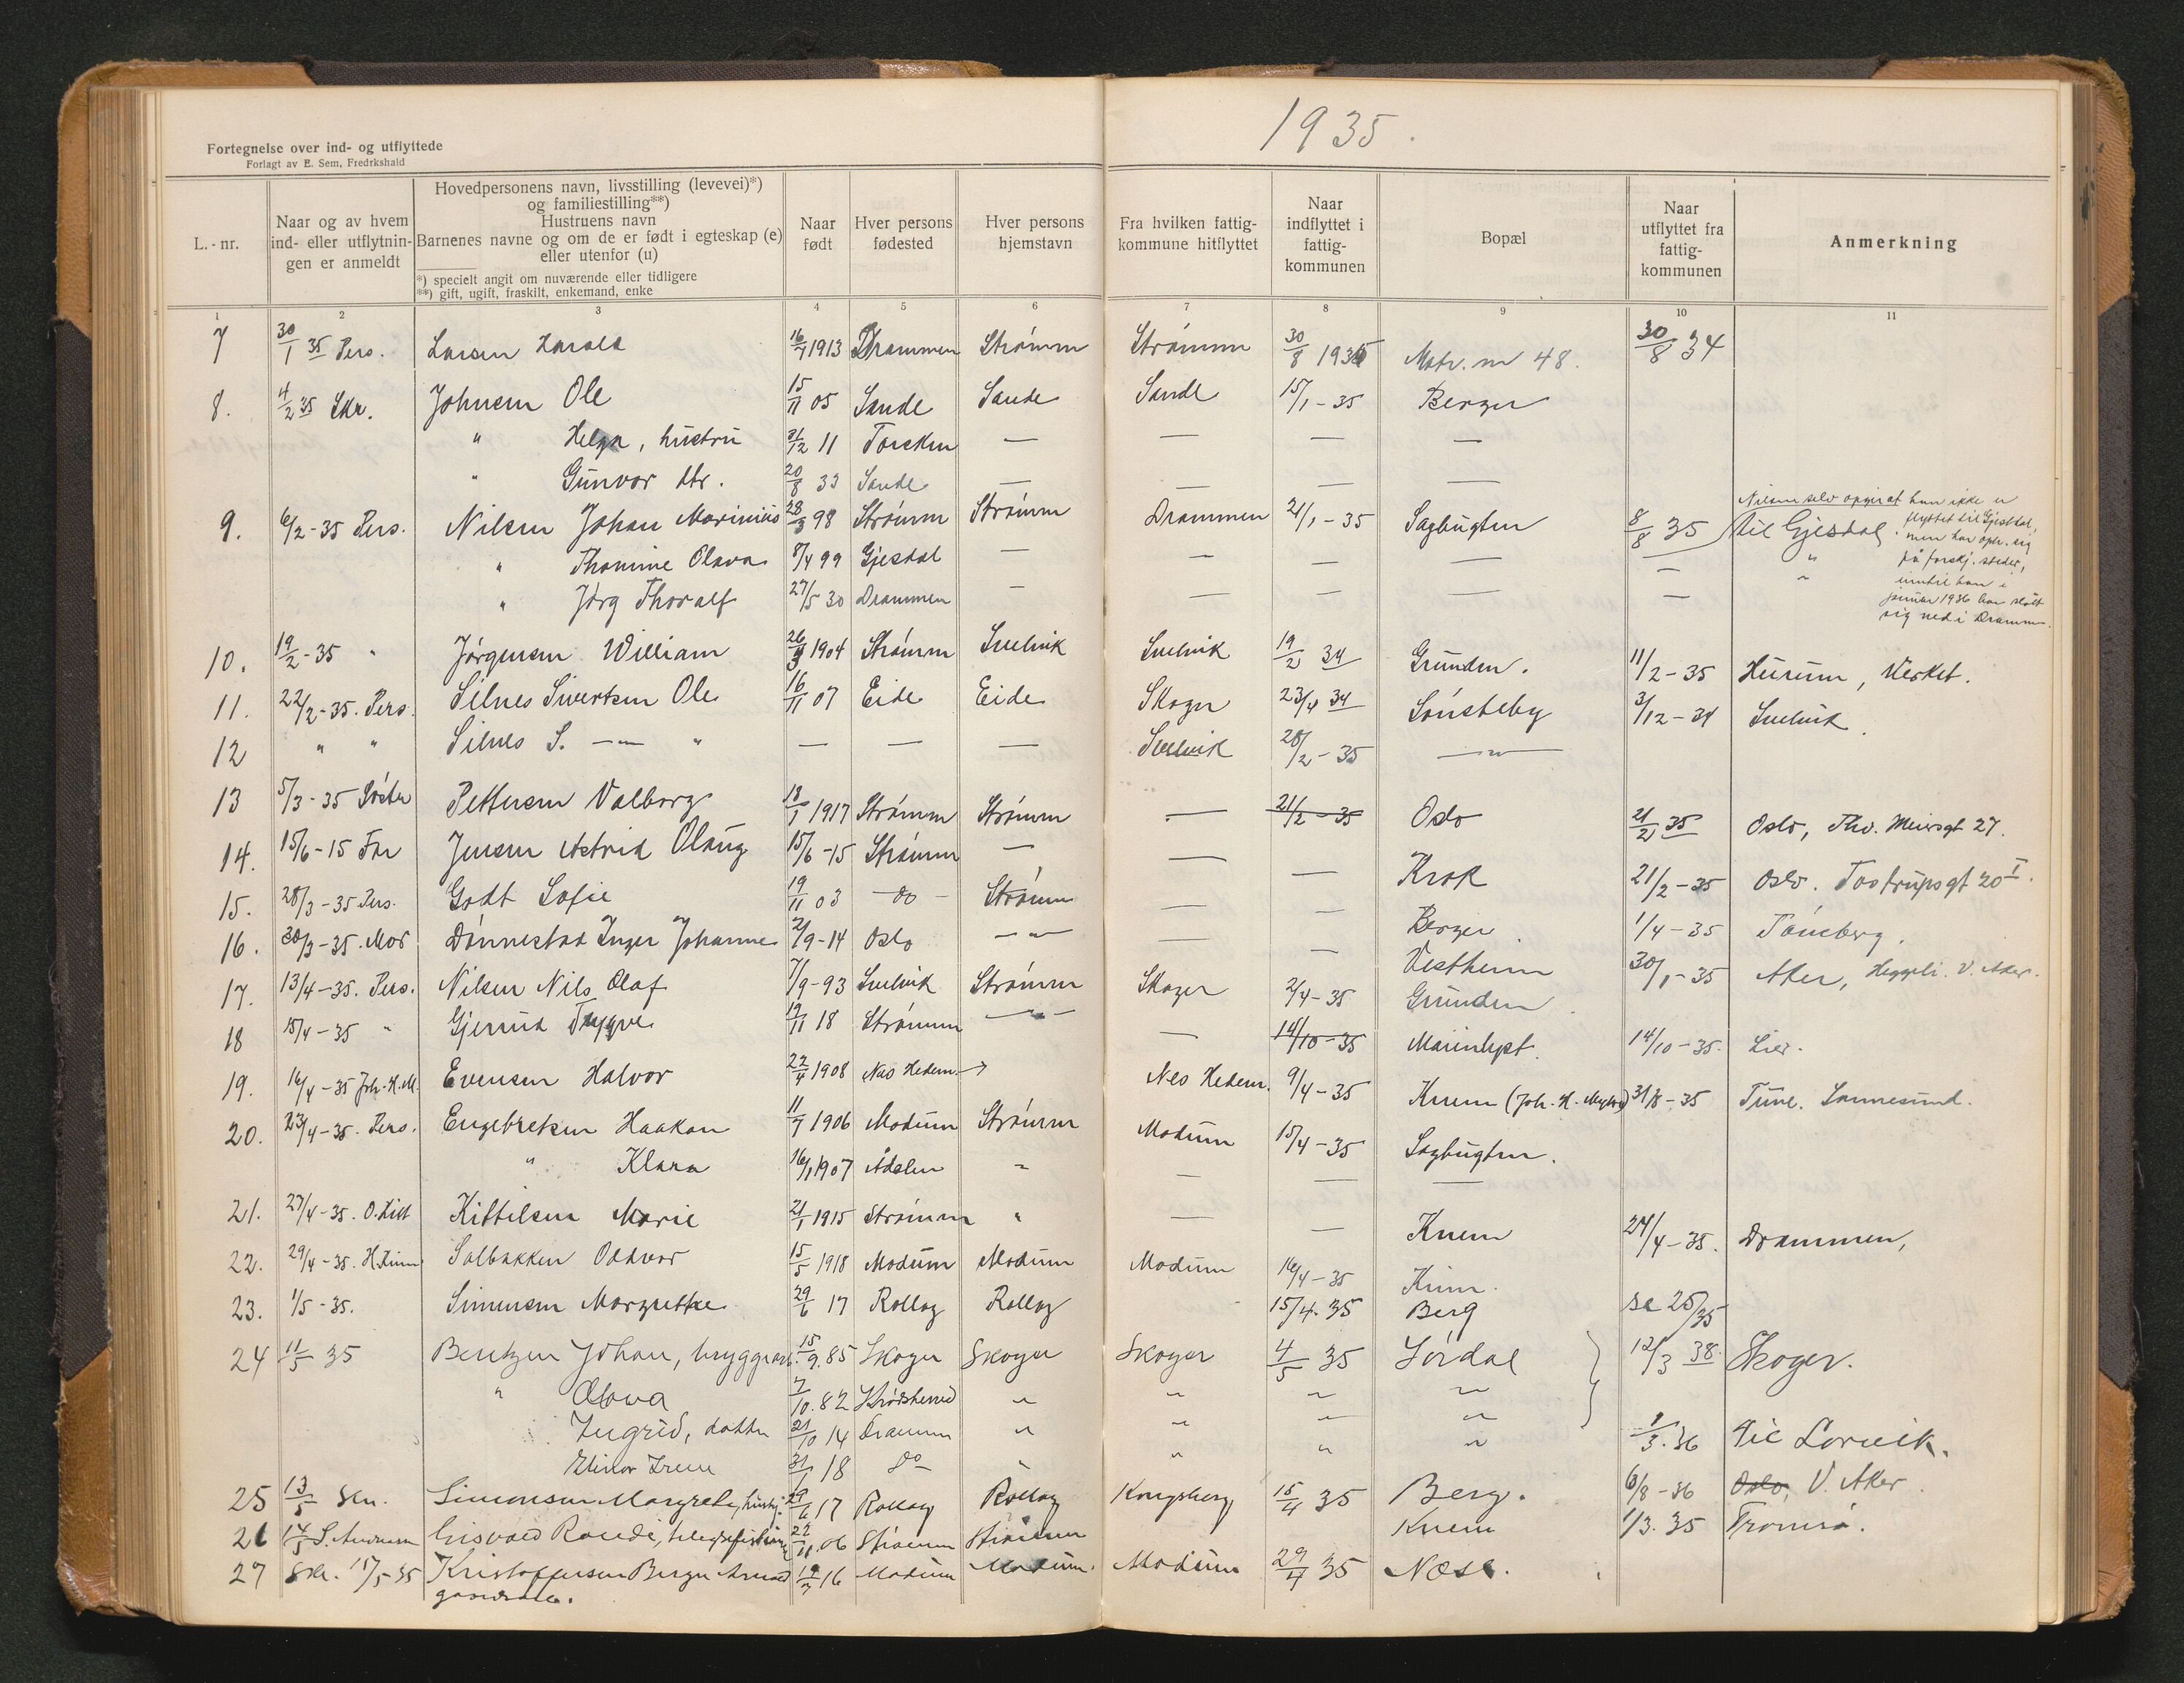 1935.
Fortegnelse over ind- og utflyttede
Forlagt av E. Sem, Fredrkshald
L.-nr.
Naar og av hvem ind- eller utflytningen er anmeldt
Hovedpersonens navn, livsstilling (levevei)*)
og familiestilling**)
Hustruens navn
Barnenes navne og om de er født i egteskap (e)
eller utenfor (u)
*) specielt angit om nuværende eller tidligere
**) gift, ugift, fraskilt, enkemand, enke
Naar født
Hver persons fødested
Hver persons hjemstavn
Fra hvilken fattig-kommune hitflyttet
Naar indflyttet i fattig-kommunen
Bopæl
Naar utflyttet fra fattig-kommunen
Anmerkning
1 2 3 4 5 6 7 8 9 10 11
7 30/1 35 Pers. Larsen Harald 16/7 1913 Drammen Strømm Strømm 30/8 1934 Matr. nr 48. 30/8 34
8. 4/2 35 Skr. Johnsen Ole 15/11 05 Sande Sande Sande 15/1-35 Berger
" Helga, hustru 31/12 11 Torsken — — — —
" Gunvor dtr. 20/8 33 Sande — — — —
9. 6/2-35 Pers. Nilsen Johan Marinius 28/3 98 Strømm Strømm Drammen 21/1-35 Sagbugten 8/8 35 til Gjesdal.
Nilsen selv opgir at han ikke er
flyttet til Gjesdal,
men har oph. sig
på forskj. steder,
inntil han i
januar 1936 har slått
sig ned i Drammen.
" Thomine Olava 8/4 99 Gjesdal — — — — — "
" Jørg Thoralf 27/5 30 Drammen — — — — — "
10. 19/2-35 " Jørgensen William 26/9 1904 Strømm Svelvik Svelvik 19/2 34 Grunden. 11/2-35 Hurum, Verket.
11. 22/2-35. Pers. Silnes Sivertsen Ole 16/11 07 Eide Eide Skoger 23/4 34 Sønsteby 3/12-34 Svelvik.
12 " " Silnes S. — " — " — — — Svelvik 20/2-35 — " —
13 5/3-35 Søster Pettersen Valborg 18/1 1917 Strømm Strømm — 21/2-35 Oslo 21/2 35 Oslo, Thv. Meiersgt 27.
14. 15/6-15 Far Jensen Astrid Olaug 15/6-15 Strømm — — — Krok 21/2-35 Oslo. Tostrupsgt 20 I.
15. 28/3-35 Pers. Godt Sofie 19/11 03 — do — Strømm — — Berger 1/4-35 Tønsberg.
16. 30/3-35. Mor Dønnestad Inger Johanne 2/9-14 Oslo — " — — — Vestheim 30/1-35 Aker, Heggeli. V. Aker.
17. 13/4-35. Pers. Nilsen Nils Olaf 7/9-93 Svelvik Strømm Skoger 2/4-35 Grunden
18 15/4-35 " Gjerud Trygve 19/11 18 Strømm — " — — 14/10-35 14/10-35. Lier.
19. 16/4-35 Joh. H. M. Evensen Halvor 22/4 1908 Nes Hedem. → Nes Hedem. 9/4-35 Knem (Joh. H. Myhre) 31/8-35 Tune. Sannesund.
20. 23/4-35. Pers. Engebretsen Haakon 11/7 1906 Modum Strømm Modum 15/4-35 Sagbugten.
" Klara 16/1 1907 Ådalen " — — —
21. 27/4-35. O. Kitt Kittilsen Marie 21/1 1915 Strømm " — — Knem 24/4-35. Drammen,
22. 29/4-35. Solbakken Oddvar 15/5 1918 Modum Modum Modum 16/4-35 Knem.
23. 1/5-35. Simensen Margrethe 29/6 17 Rollag Rollag 15/4.35 Berg se 25/35
24 11/5 35 Bentzen Johan, bryggearb. 15/9.85 Skoger Skoger Skoger 4/5 35 Sørdal 12/3 38. Skoger.
" Olova 7/10.82 Krødsherred " " " "
Ingrid, datter 21/10 14 Drammen " " " " 1/3.36 Til Larvik.
Elinor Irene 31/1 18 do " " " "
25 13/5 Skr. Simonsen Margrete, hushj. 29/6 17 Rollag Rollag Kongsberg 15/4 35 Berg. 6/8-36 Oslo, V. Aker.
26 14/5 Randi, 22/11.06 Strømm Strømm Knem 1/3.35 Tromsø.
27 Skr. 11/5-35 Kristoffersen Birger Arnold 16 Modum Modum. Modum 29/4 35 Nøss.
gårdsarb.